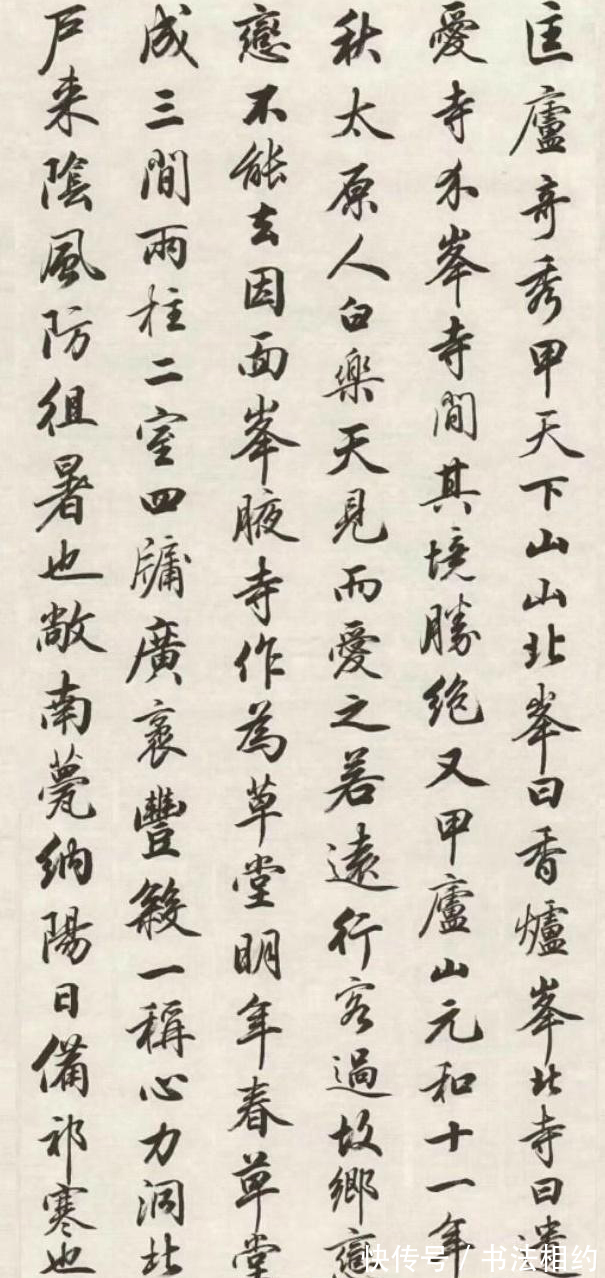 匡廬奇秀甲天下山山北峯曰香爐峯北寺曰遺
愛寺介峯寺間其境勝絶又甲廬山元和十一年
秋太原人白樂天見而愛之若遠行客過故鄉戀
戀不能去因面峯腋寺作為草堂明年春草堂
成三間兩柱二室四牗廣袤豐殺一稱心力洞北
戶来陰風防徂暑也敞南甍納陽日備祁寒也
快传号/书法相约